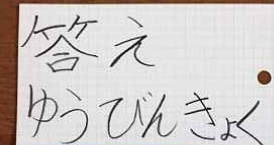 答え
ゆうびんきょく